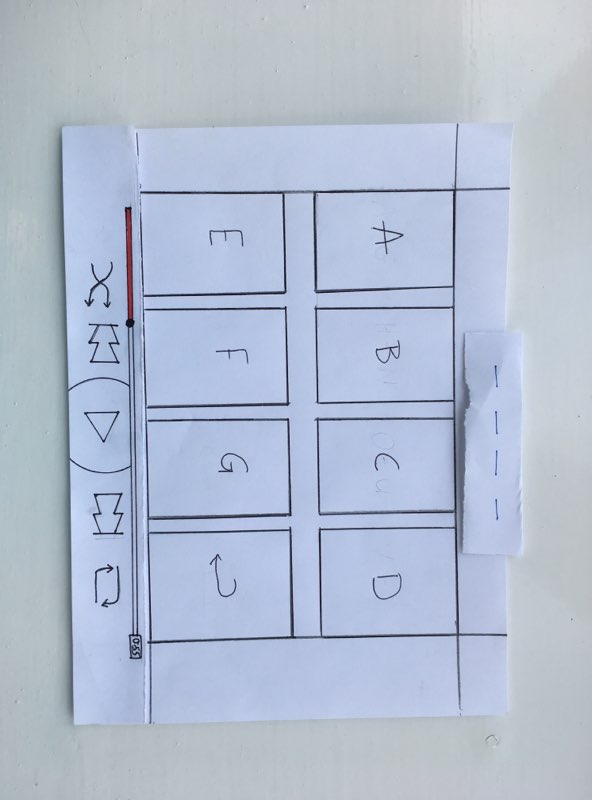 _ _ _ _
A B C D
E F G
0:55